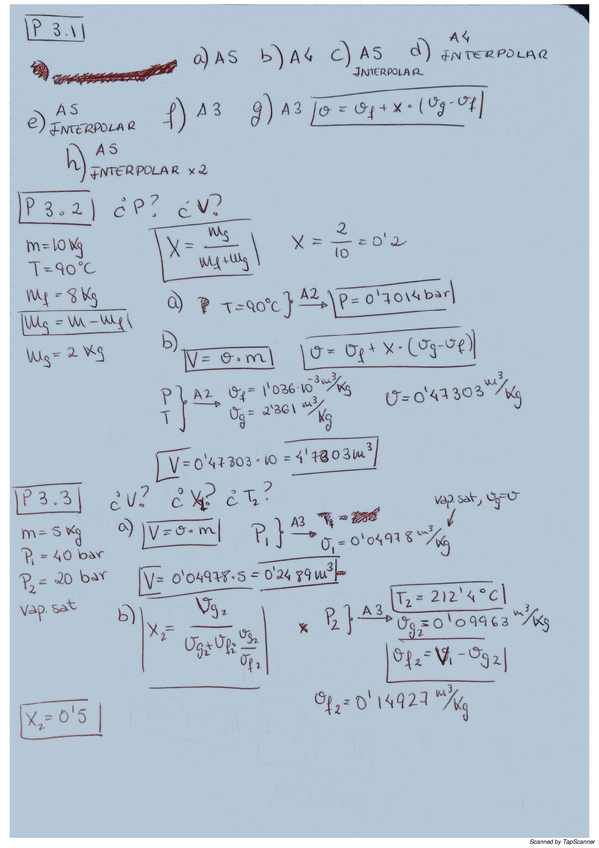 P 3.1
a) A5 b) A4 c) A5 INTERPOLAR d) A4 INTERPOLAR
e) A5 INTERPOLAR f) A3 g) A3 v = vf + x · (vg - vf)
h) A5 INTERPOLAR x 2
P 3.2 ¿P? ¿V?
m = 10 Kg
T = 90°C
mf = 8 Kg
mg = m - mf
mg = 2 Kg
X = mg / mf + mg X = 2/10 = 0'2
a) T = 90°C } A2 → P = 0'7014 bar
b) V = v · m v = vf + x · (vg - vf)
P T } A2 → vf = 1'036·10⁻³ m³/Kg vg = 2'361 m³/Kg v = 0'47303 m³/Kg
V = 0'47303 · 10 = 4'7303 m³
P 3.3 ¿V? ¿X? ¿T₂?
m = 5 Kg
P₁ = 40 bar
P₂ = 20 bar
vap. sat
a) V = v · m P₁ } A3 → v₁ = 0'04978 m³/Kg
vap. sat, vg = v
V = 0'04978 · 5 = 0'2489 m³
b) X₂ = Vg₂ / vg₂ + vf₂ · vg₂/vf₂ P₂ } A3 → T₂ = 212'4°C
vg₂ = 0'09963 m³/Kg
vf₂ = V₁ - vg₂
vf₂ = 0'14927 m³/Kg
X₂ = 0'5
Scanned by TapScanner